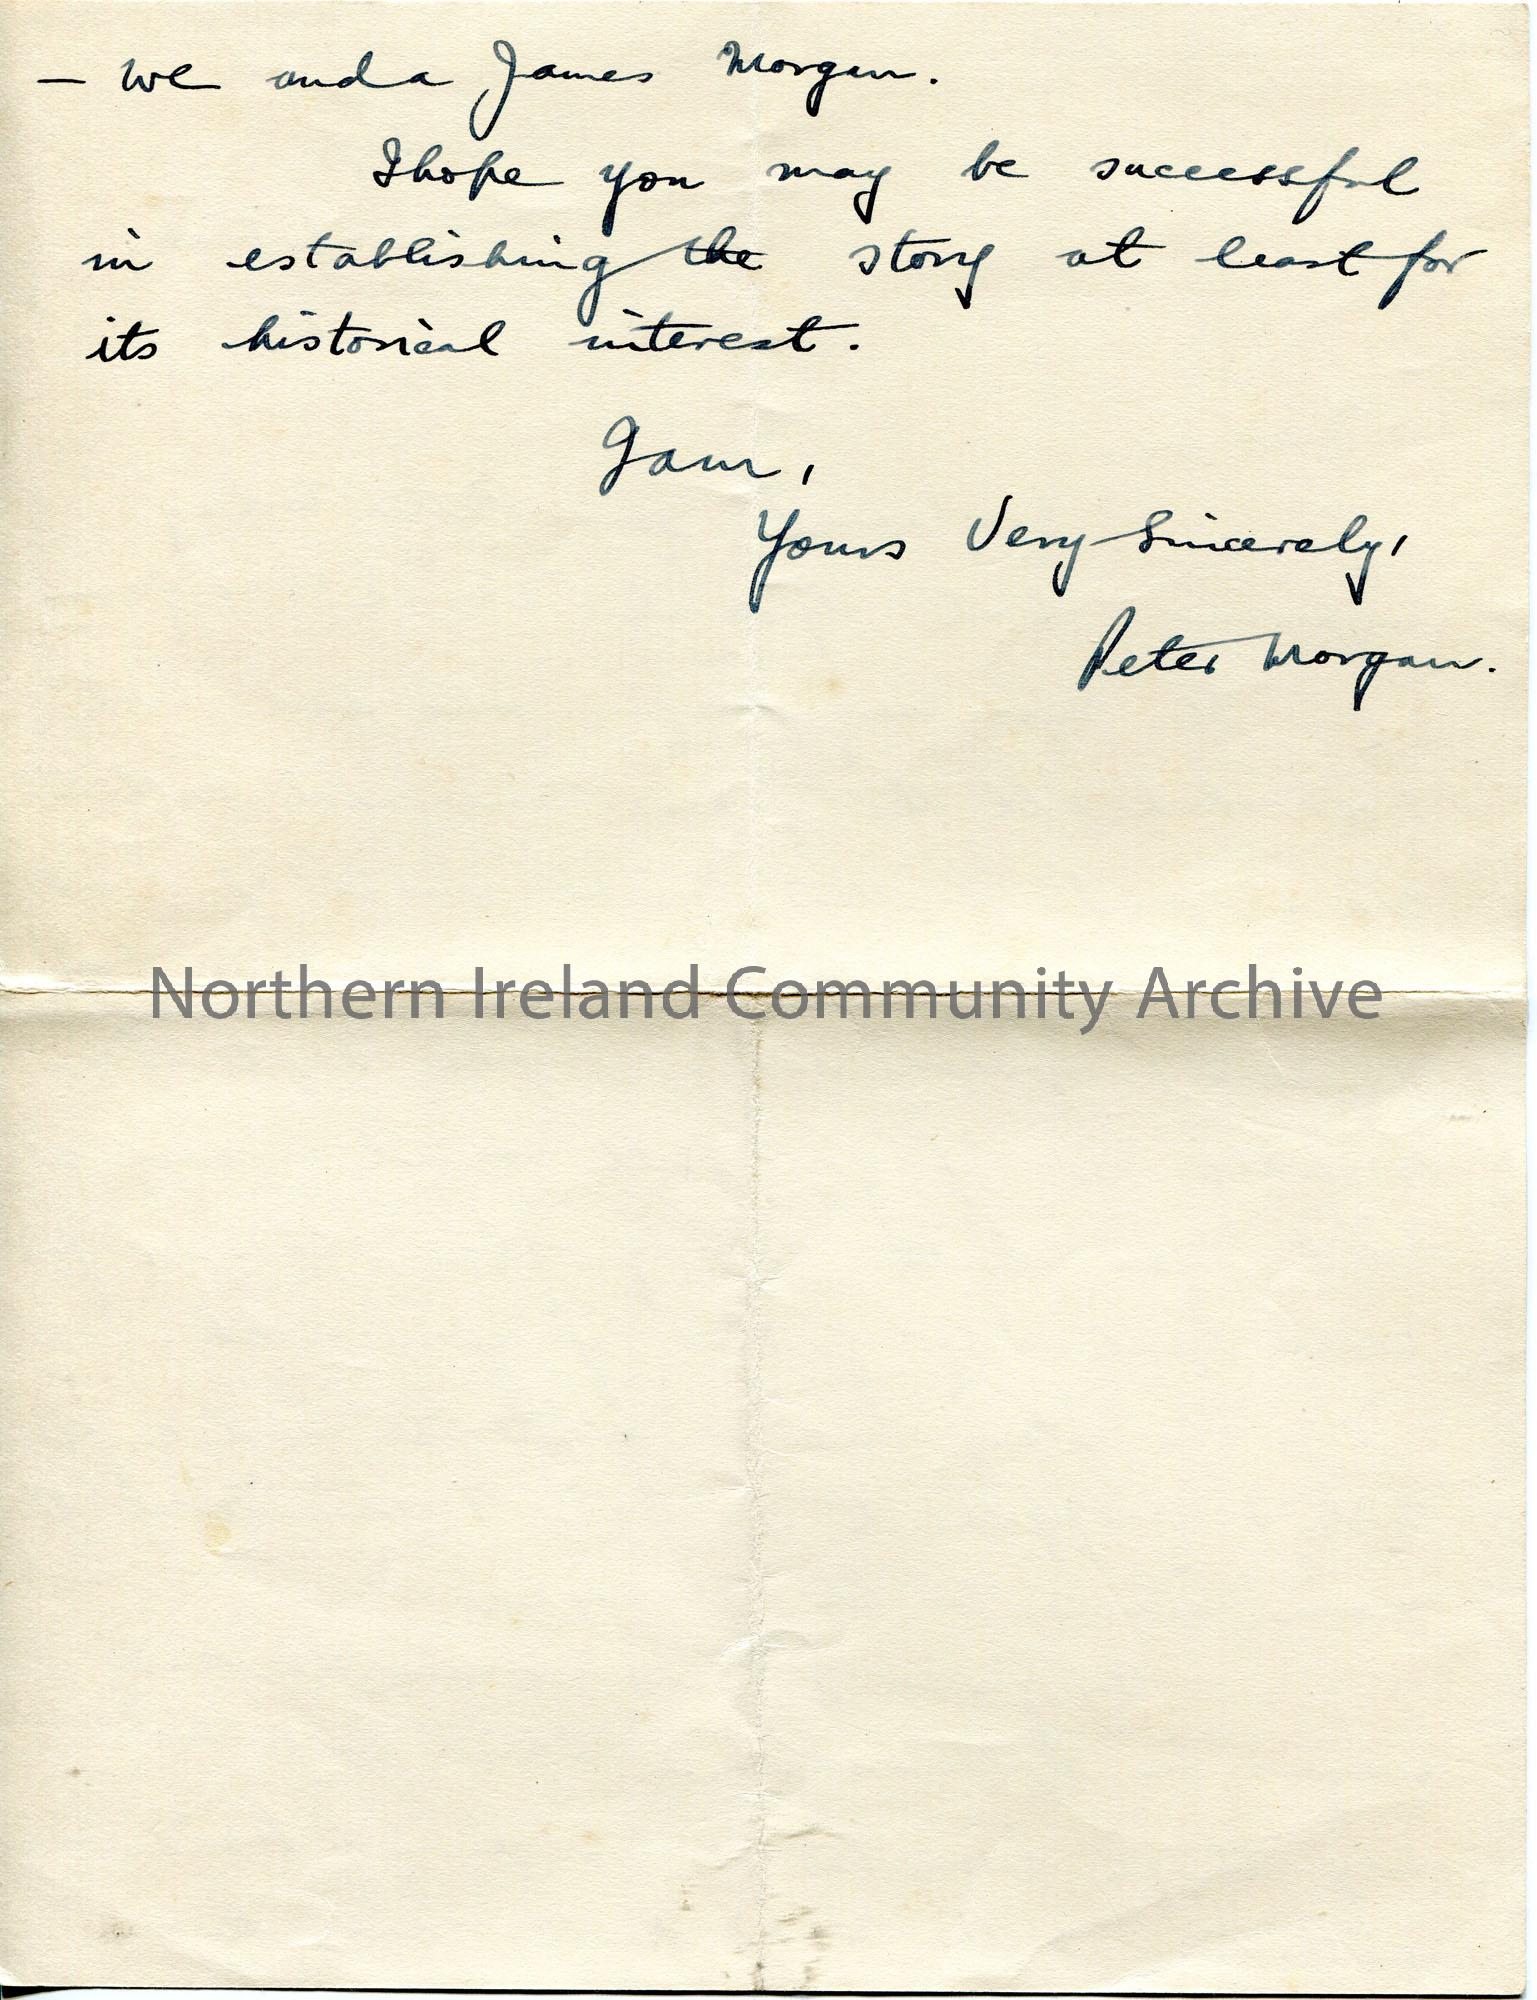 - we and a James Morgan.
I hope you may be successful
in establishing the story at least for
its historical interest.
I am,
Yours Very Sincerely,
Peter Morgan.
Northern Ireland Community Archive